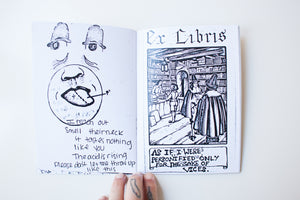 I reach out
Smell their neck
& tastes nothing
like you
The acid is rising
Please don't let me throw up
like this
Ex Libris
AS IF I WERE
PERSONIFIED ONLY
FOR THE SAKE OF
VICES.